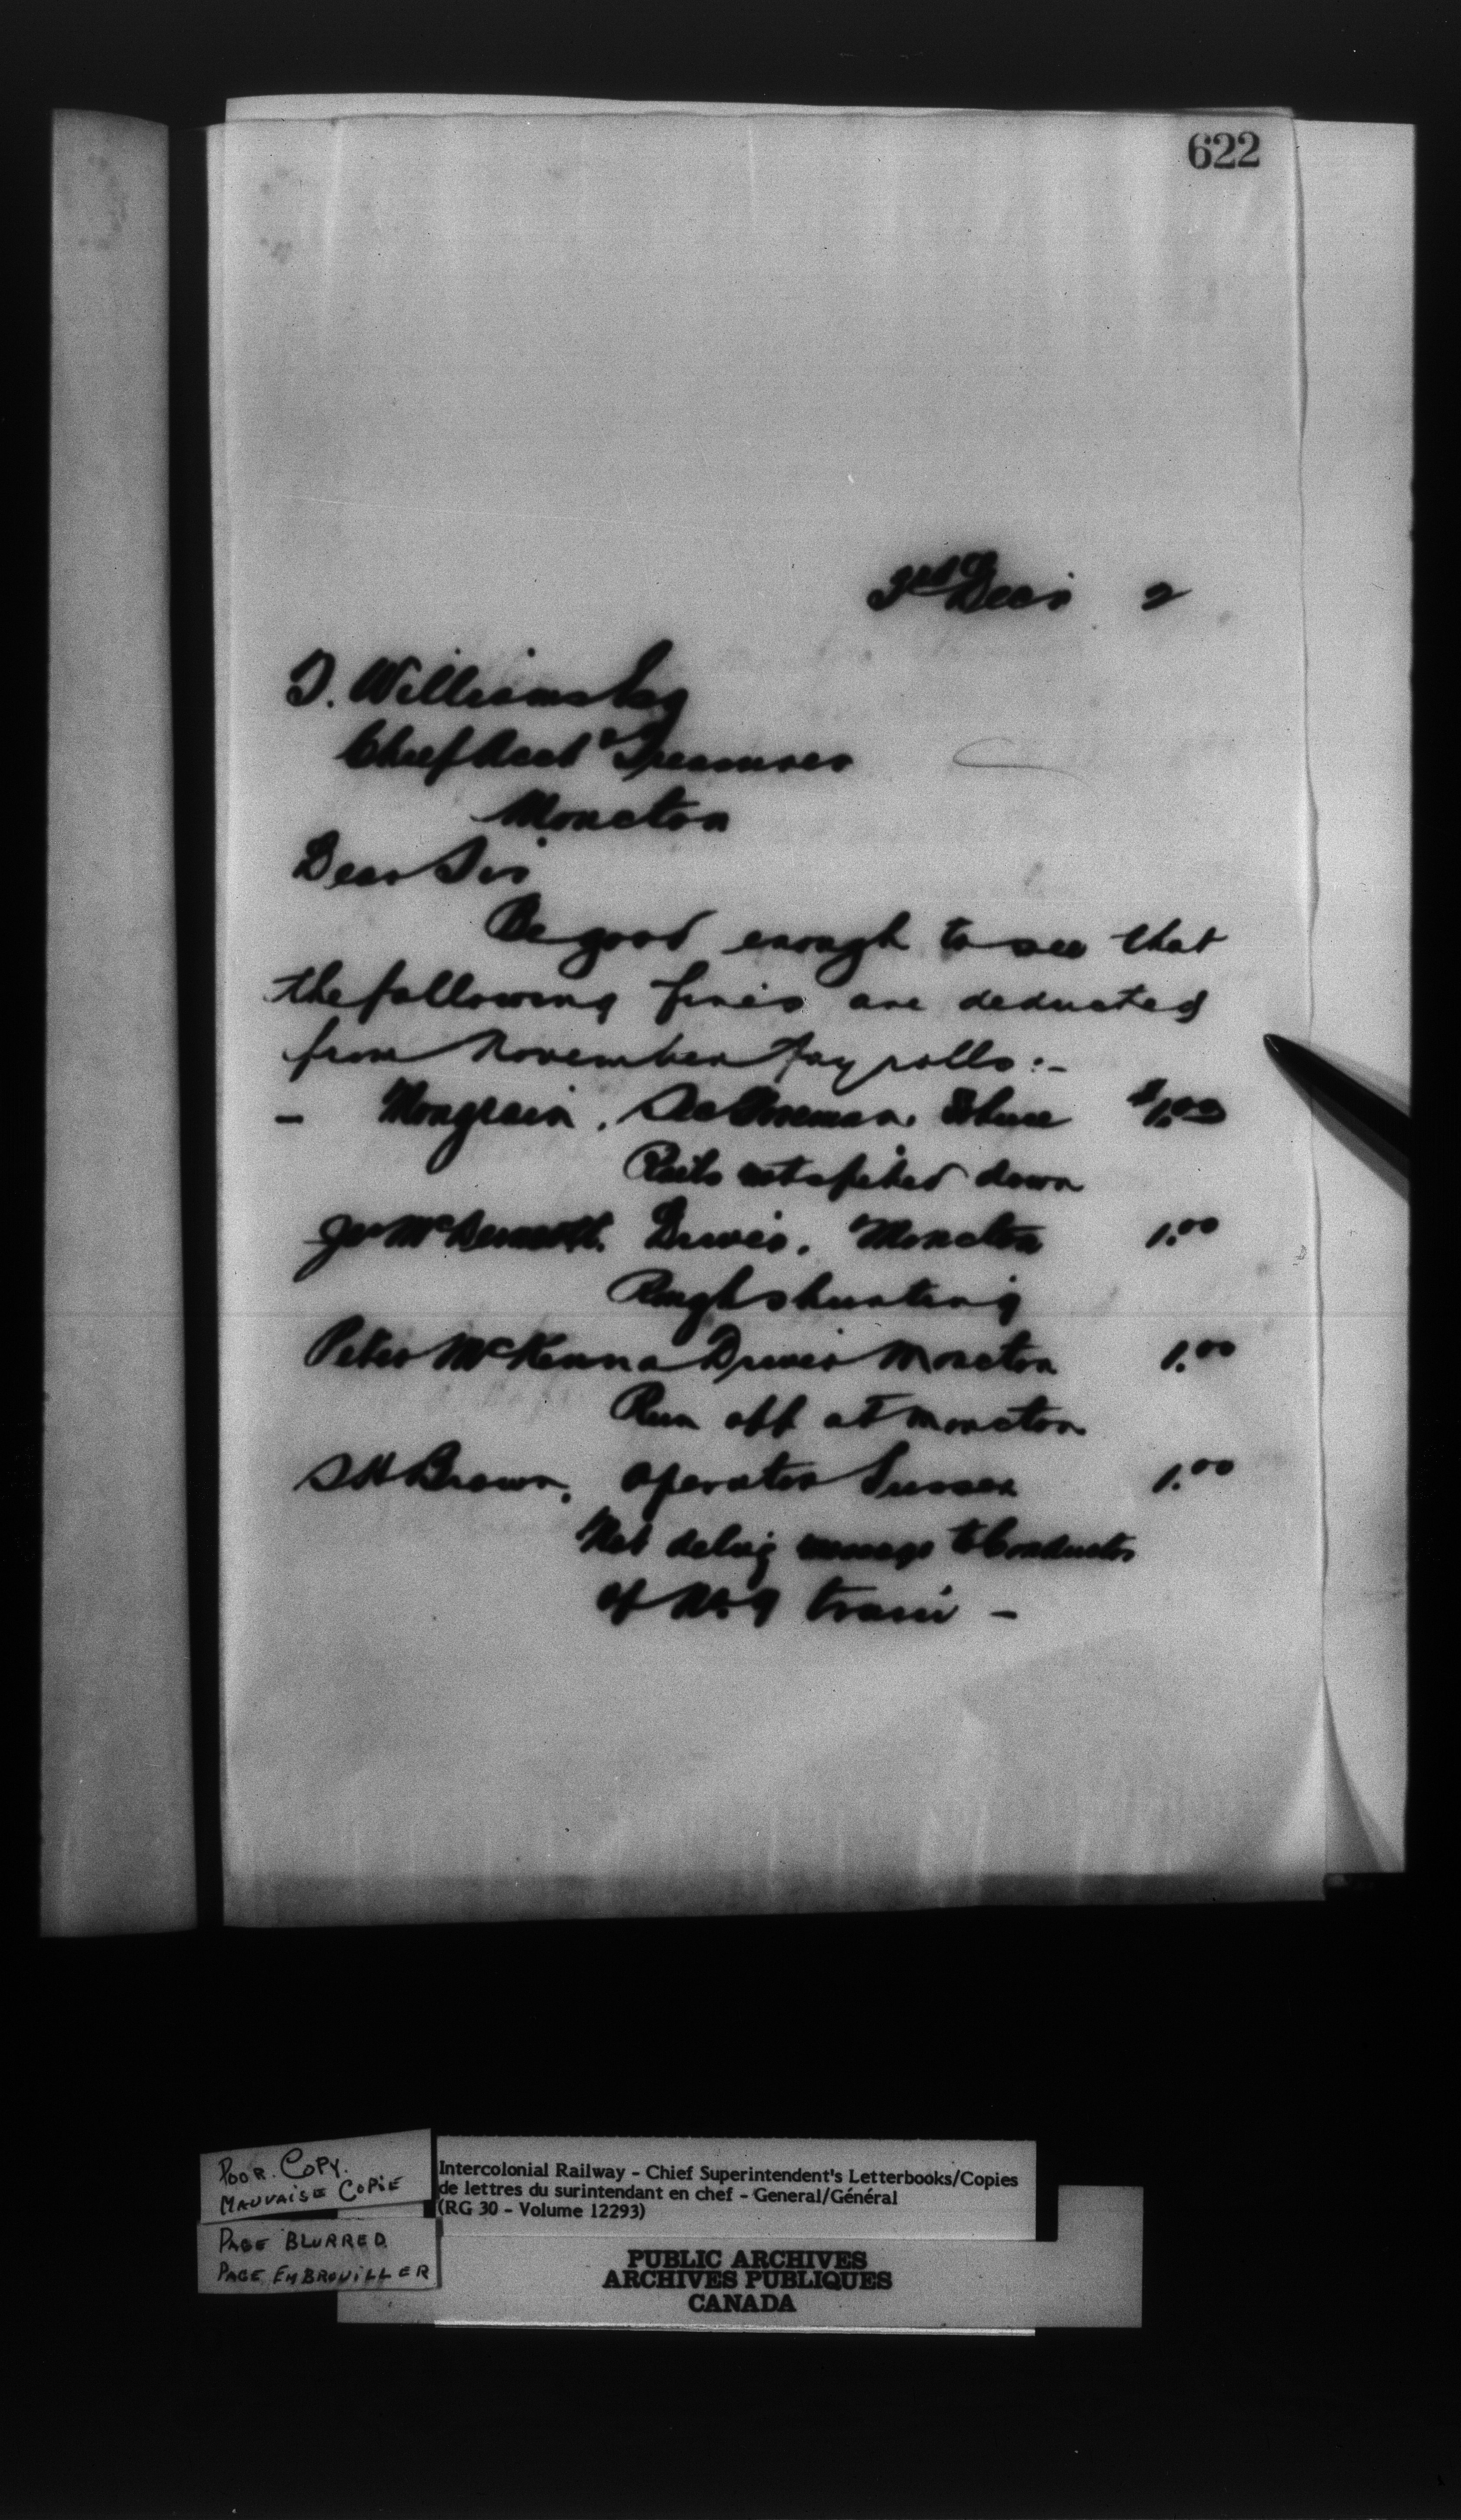 622
3rd Decr 2
T. Williams Esq
Chief Acct & Treasurer
Moncton
Dear Sir
Be good enough to see that
the following fines are deducted
from November Pay rolls :-
- Mongrain, Sec Foreman. $1.00
Rails not spiked down
McDermott. Driver. Moncton 1.00
Rough shunting
Peter McKenna Driver Moncton 1.00
Run off at Moncton
S H Brown, Operator Sussex 1.00
Not delvg message to Conductor
of No. 9 train -
POOR. COPY.
MAUVAISE COPIE
PAGE BLURRED
PAGE EMBROUILLER
Intercolonial Railway - Chief Superintendent's Letterbooks/Copies
de lettres du surintendant en chef - General/Général
(RG 30 - Volume 12293)
PUBLIC ARCHIVES
ARCHIVES PUBLIQUES
CANADA